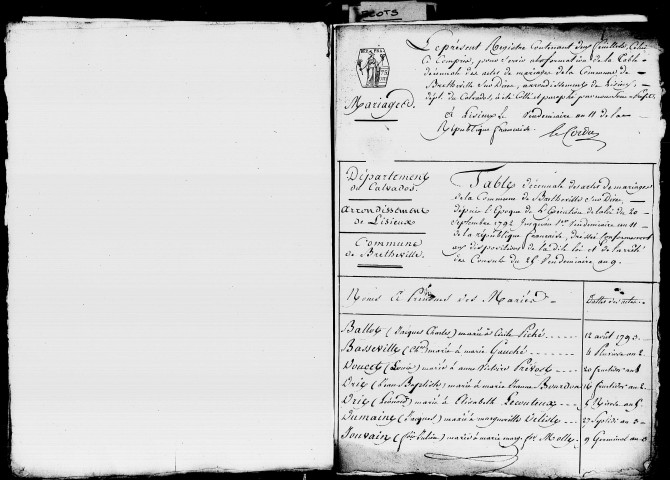 Mariages.
Le présent Registre Contenant deux feuillets, celui
ci Compris, pour servir à la formation de la Table
décennale des actes de mariages de la Commune de
Bretheville sur Dive, arrondissement de Lisieux,
dépt. du Calvados, a été Cotté et paraphé par nous
à Lisieux le Vendemiaire an 11 de la
République française.
Département
du Calvados.
Arrondissement
de Lisieux
Commune
de Bretheville.
Table décennale des actes de mariages
de la Commune de Bretheville sur Dive,
depuis l'Epoque de l'Exécution de la loi du 20
Septembre 1792 jusqu'au 1er Vendemiaire an 11
de la république française, dressée conformément
aux dispositions de la dite loi et de l'arrêté
des Consuls du 25 Vendemiaire an 9.
Noms et Prénoms des Mariés
Dattes des actes
Ballot (Jacques Charles) marié à Cécile Piché 12 août 1793.
Basseville marié à marie Gauché 6 an 2.
Doucet (Louis) marié à anne Victoire Prévost 20
Drie (Jean Baptiste) marié à marie Jeanne 16 an 2.
Drie (Léonord) marié à Elisabeth Lecouteux
Dumaine (Jacques) marié à marguerite Delisle 27 an 3
Jouvain marié à marie marg. 9 Germinal an 3